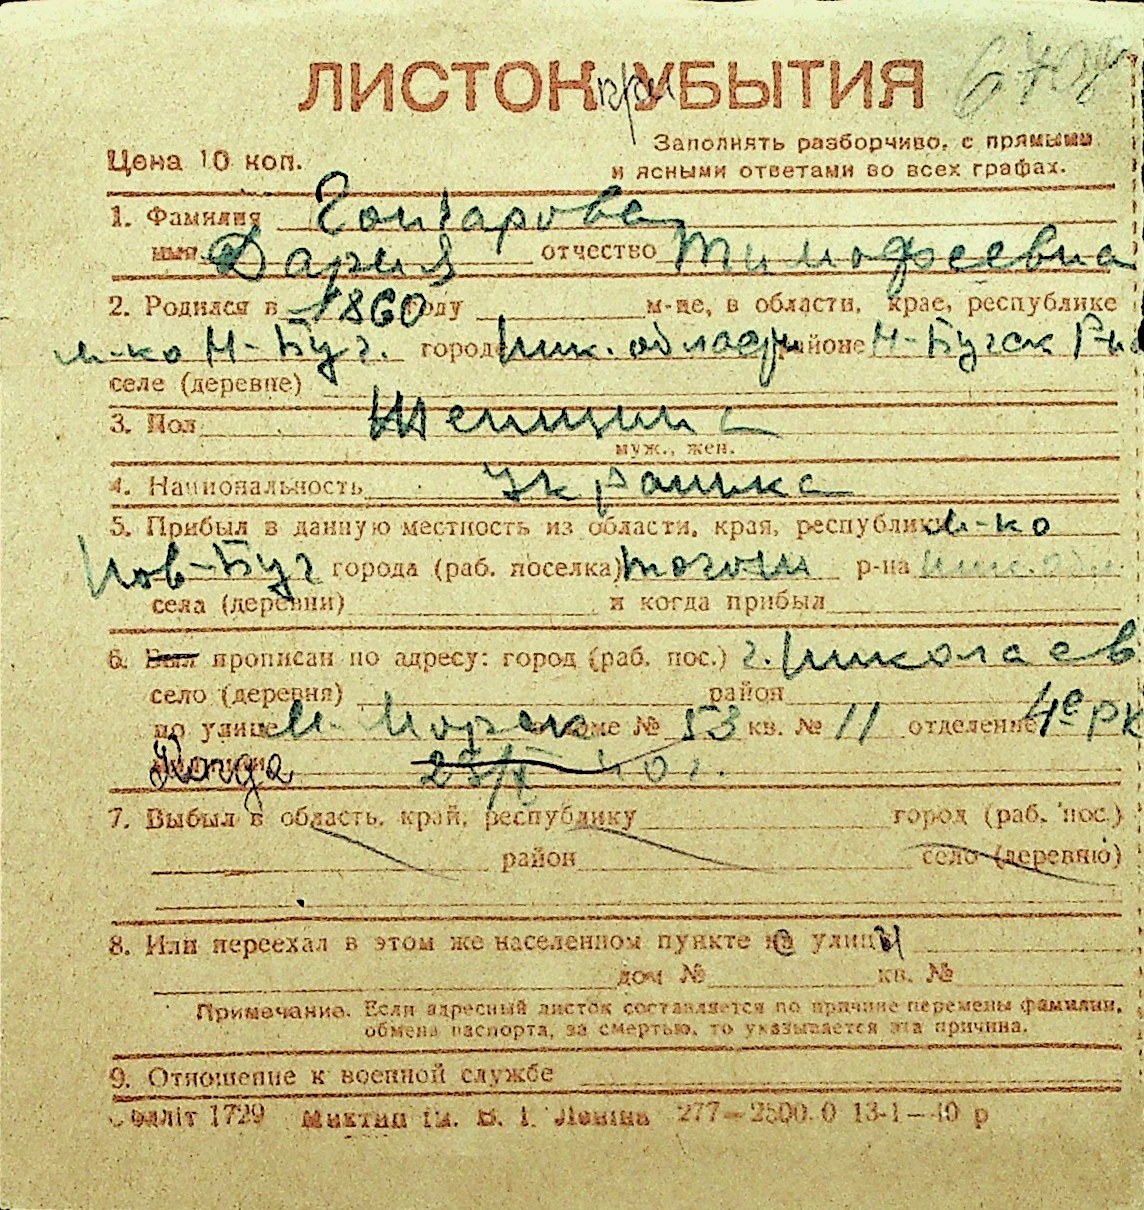 ЛИСТОК при УБЫТИЯ
Цена 10 коп.
Заполнять разборчиво, с прямыми
и ясными ответами во всех графах.
1. Фамилия Гончарова
имя Дария отчество Тимофеевна
2. Родился в 1860 году м-це, в области, крае, республике
м-ко Н-Буг. городе Ник. области районе Н-Бугск
селе (деревне)
3. Пол Женщина
муж., жен.
4. Национальность Украинка
5. Прибыл в данную местность из области, края, республики м-ко
Нов-Буг города (раб. поселка) р-на Ник. обл.
села (деревни) и когда прибыл
6. Был прописан по адресу: город (раб. пос.) г. Николаев
село (деревня) район
по улице М-Морск доме № 53 кв. № 11 отделение 4е РК
Когда 40 г.
7. Выбыл в область, край, республику город (раб. пос.)
район село (деревню)
8. Или переехал в этом же населенном пункте с улицы
дом № кв. №
Примечание. Если адресный листок составляется по причине перемены фамилии,
обмена паспорта, за смертью, то указывается эта причина.
9. Отношение к военной службе
Облліт 1729 Миктип ім. В. І. Леніна 277—2500.0 13-1—40 р